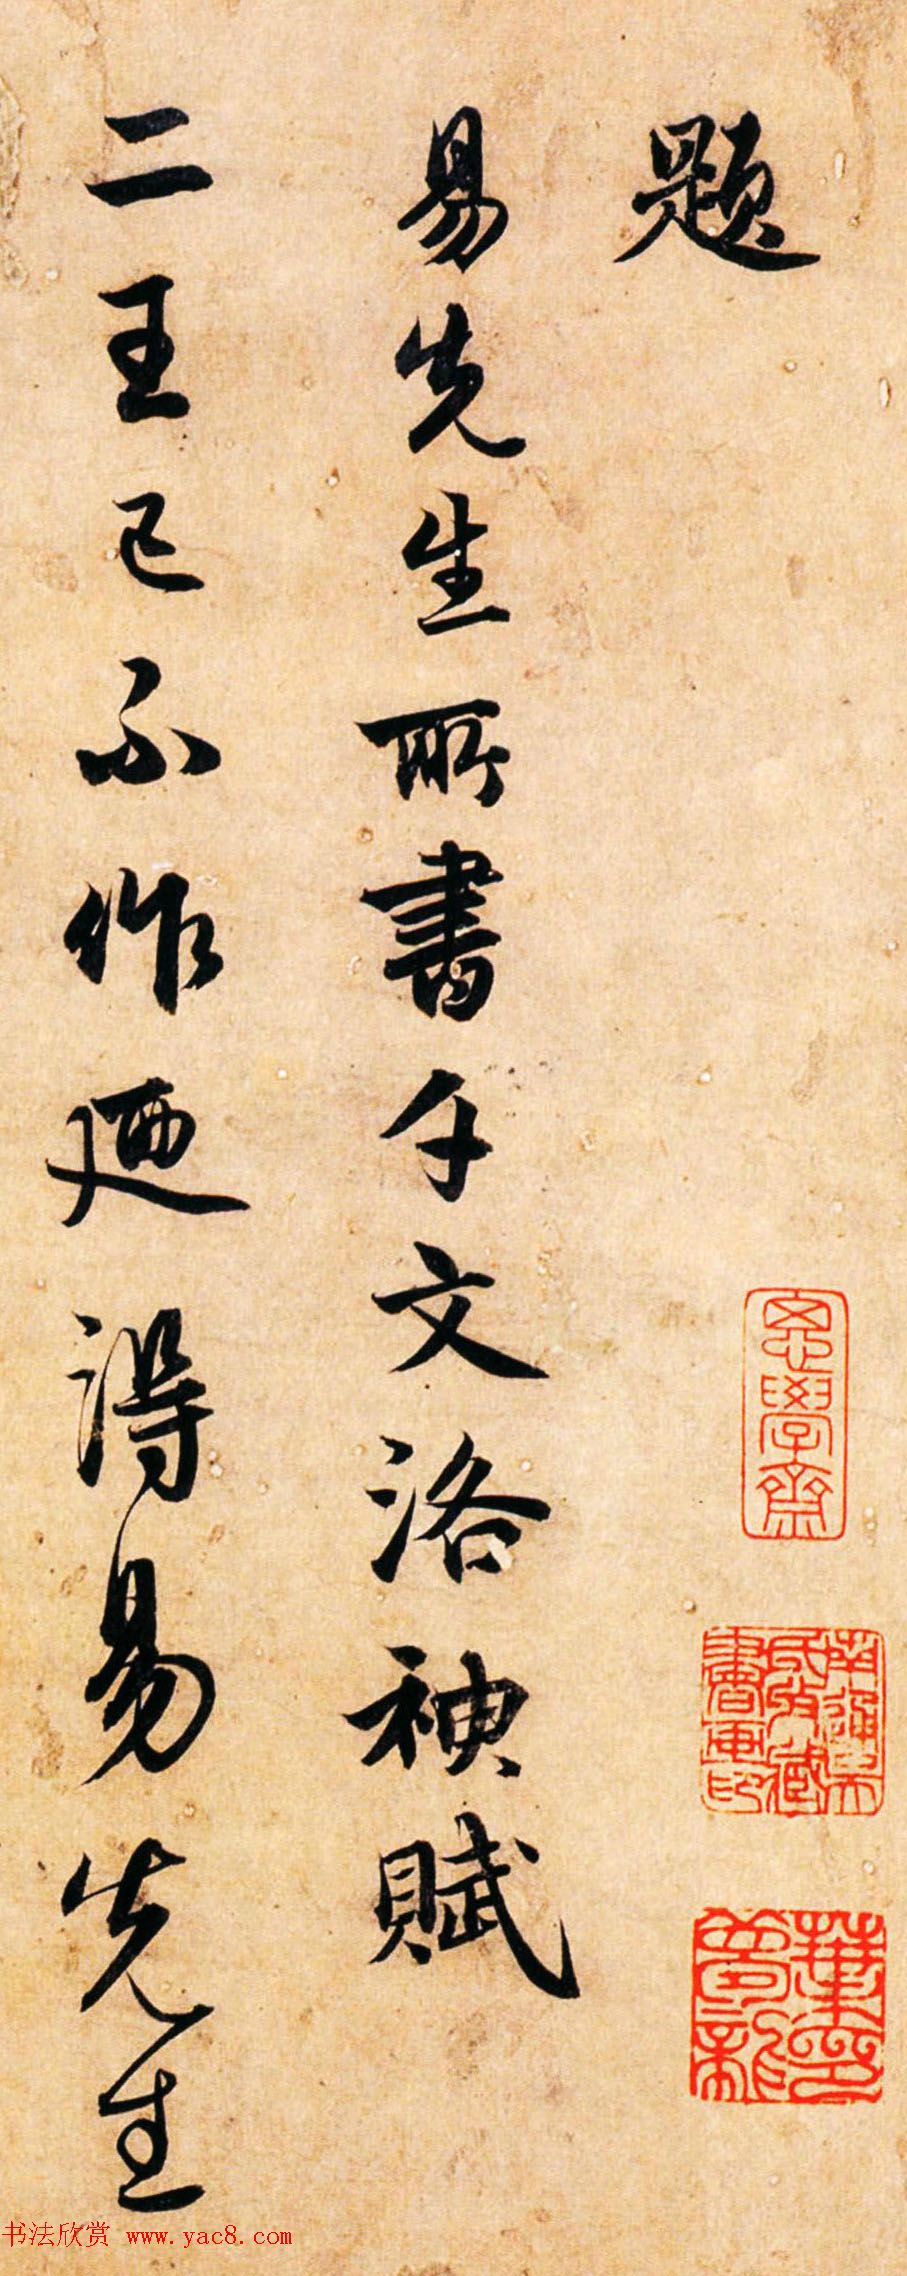 題
易先生所書千文洛神賦
二王已不作廼得易先生
思學齋
書法欣赏 www.yac8.com